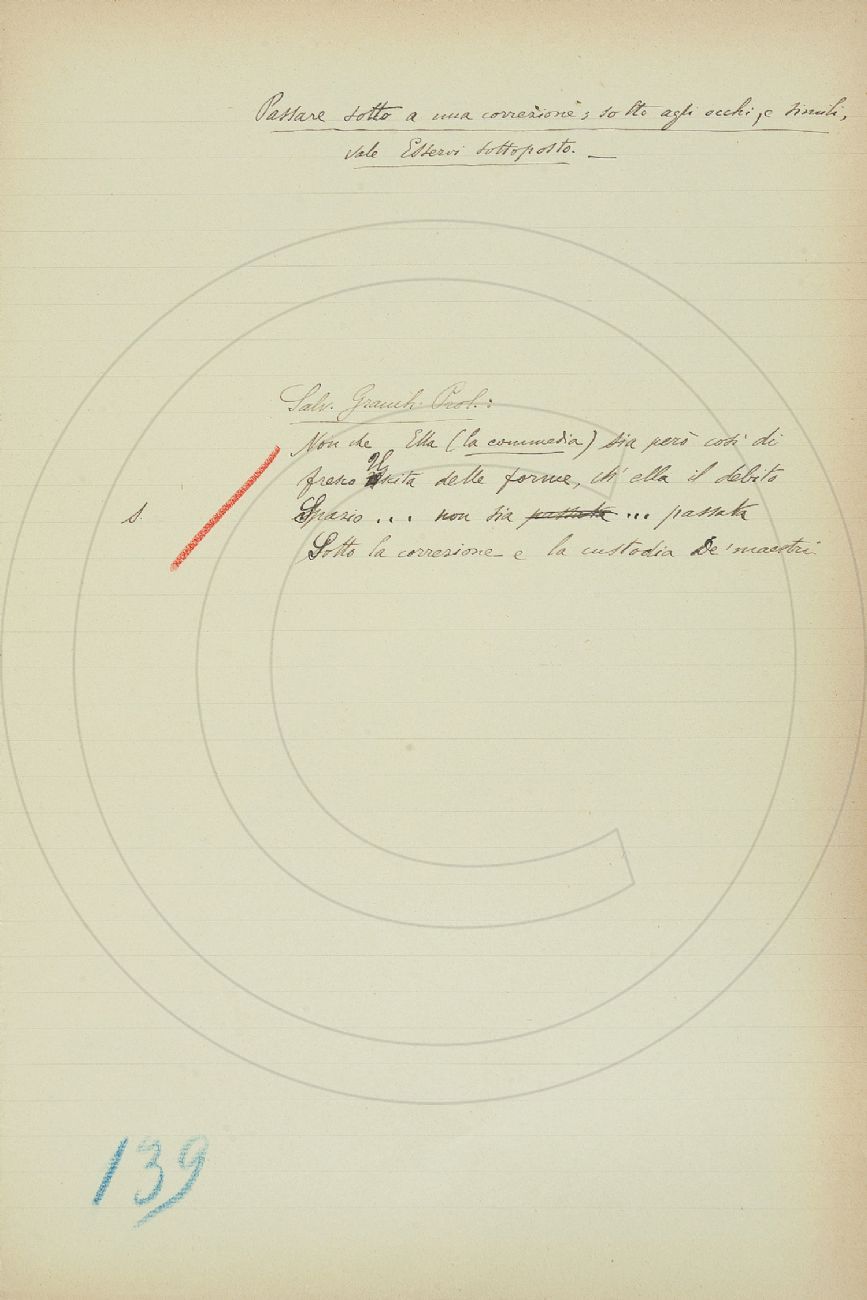 Passare sotto a una correzione; sotto agli occhi, e simili,
vale Esservi sottoposto. —
Salv. Granch. Prol.:
Non che Ella (la commedia) sia però così di
fresco Uscita delle forme, ch' ella il debito
S.
Spazio ... non sia passata ... passata
Sotto la correzione e la custodia De' maestri
139